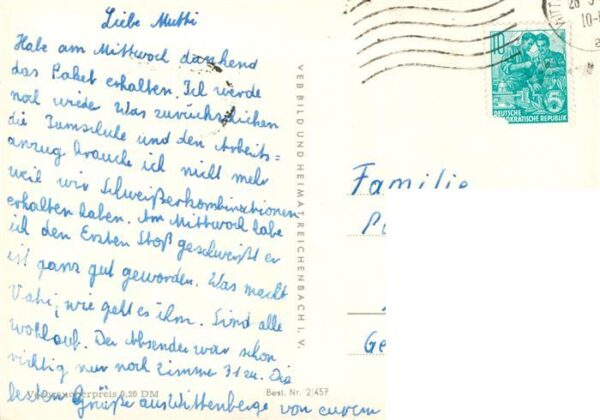 Liebe Mutti
Habe am Mittwoch dankend
das Paket erhalten. Ich werde
noch wieder was zurückschicken
die Turnschuhe und den Arbeits=
anzug brauche ich nicht mehr
weil wir Schweißerkombinationen
erhalten haben. Am Mittwoch habe
ich den Ersten Stoß geschweißt er
ist ganz gut geworden. Was macht
Vati, wie geht es ihm. Sind alle
wohlauf. Der Absender war schon
richtig nur noch Zimmer 312a. Die
besten Grüße aus Wittenberge von eurem
VEB BILD UND HEIMAT, REICHENBACH I. V.
Verbraucherpreis 0,20 DM
Best. Nr. 2/457
10
DEUTSCHE
DEMOKRATISCHE REPUBLIK
5
Familie
Ge